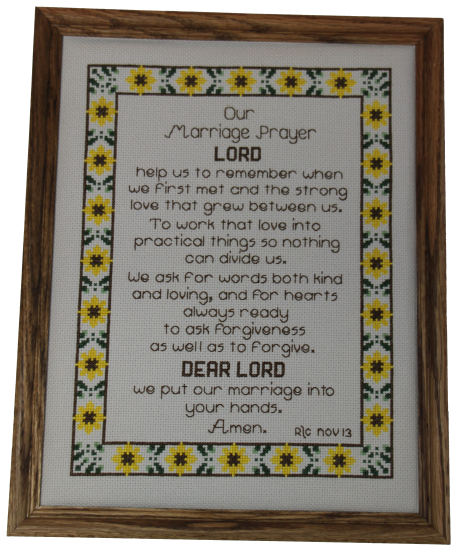 Our
Marriage Prayer
LORD
help us to remember when
we first met and the strong
love that grew between us.
To work that love into
practical things so nothing
can divide us.
We ask for words both kind
and loving, and for hearts
always ready
to ask forgiveness
as well as to forgive.
DEAR LORD
we put our marriage into
your hands.
Amen. R|G NOV13